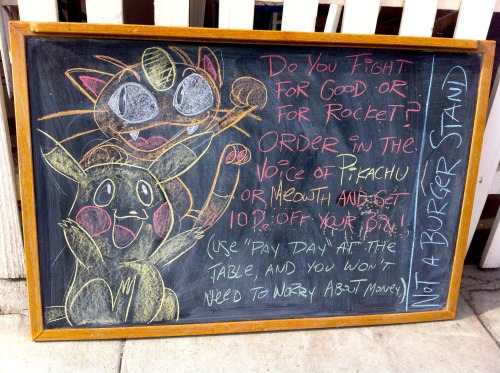 Do You Fight
For Good or
For Rocket?
Order in the
Voice of Pikachu
or Meowth and get
10% off your bill!
(Use "Pay Day" at the
table, and you won't
need to worry about money)
Not a Burger Stand